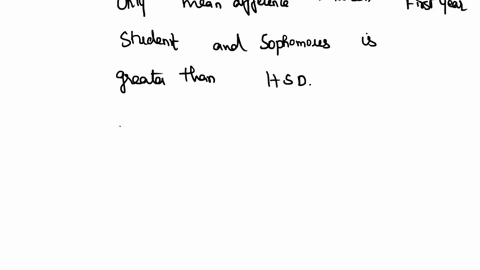 Only mean difference First year
Student and Sophomores is
greater than HSD.